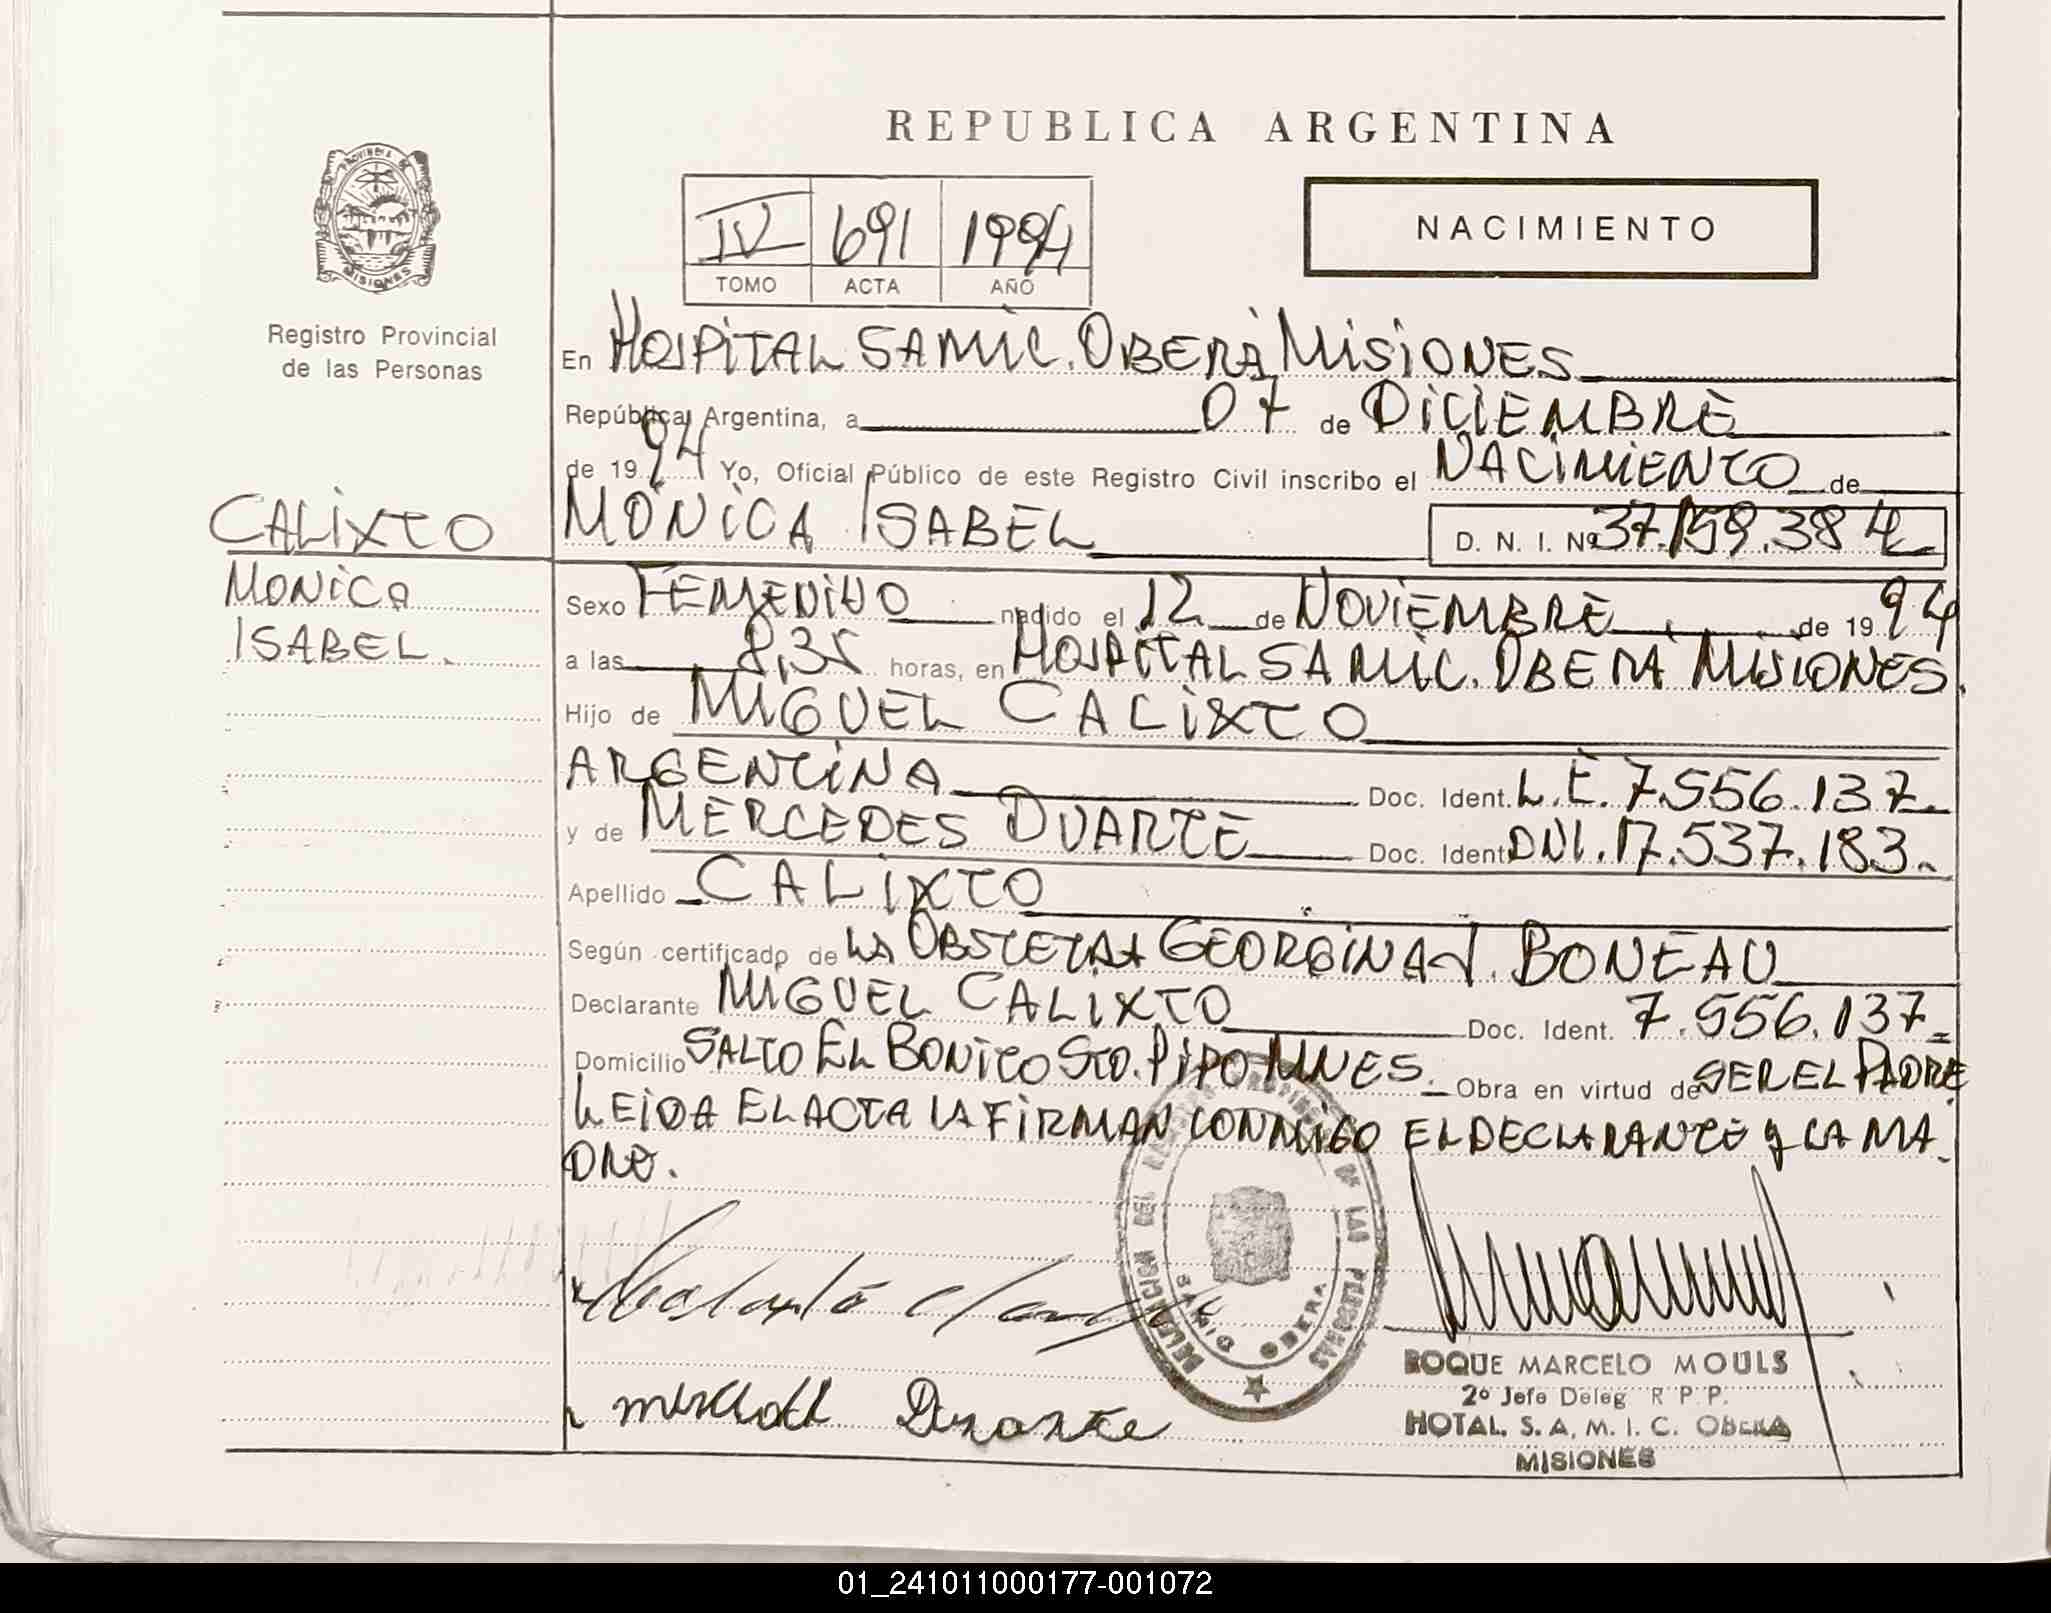 REPUBLICA ARGENTINA
PROVINCIA DE
MISIONES
Registro Provincial
de las Personas
IV 691 1994
TOMO ACTA AÑO
NACIMIENTO
En HOSPITAL SAMIC. OBERÁ MISIONES
República Argentina, a 07 de DICIEMBRE
de 1994 Yo, Oficial Público de este Registro Civil inscribo el NACIMIENTO de
CALIXTO
MONICA
ISABEL.
MÓNICA ISABEL D. N. I. Nº 37.159.384
Sexo FEMENINO nacido el 12 de NOVIEMBRE de 1994
a las 8,35 horas, en HOSPITAL SAMIC. OBERA MISIONES.
Hijo de MIGUEL CALIXTO
ARGENTINA Doc. Ident. L.E. 7.556.137
y de MERCEDES DUARTE Doc. Ident. DNI. 17.537.183
Apellido CALIXTO
Según certificado de LA OBSTETRA GEORGINA J. BONEAU
Declarante MIGUEL CALIXTO Doc. Ident. 7.556.137
Domicilio SALTO EL BONITO STO. PIPO MNES. Obra en virtud de SER EL PADRE
LEIDA EL ACTA LA FIRMAN CONMIGO EL DECLARANTE Y LA MA
DRE.
DELEGACION DEL REGISTRO PROVINCIAL DE LAS PERSONAS
SAMIC OBERA
Duarte
ROQUE MARCELO MOULS
2º Jefe Deleg R. P. P.
HOTAL. S. A. M. I. C. OBERA
MISIONES
01_241011000177-001072